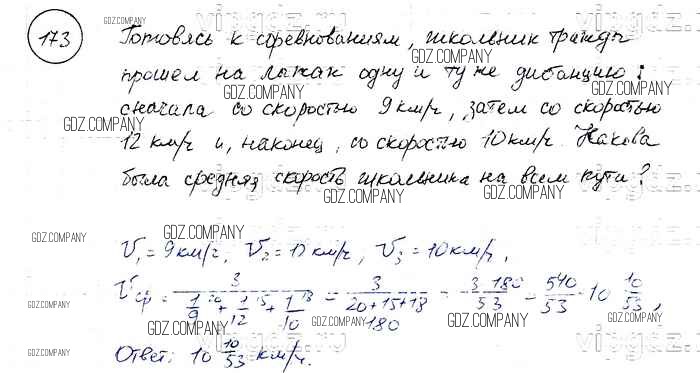 173
Готовясь к соревнованиям, школьник трижды
прошел на лыжах одну и ту же дистанцию:
сначала со скоростью 9 км/ч, затем со скоростью
12 км/ч и, наконец, со скоростью 10 км/ч. Какова
была средняя скорость школьника на всем пути?
V₁ = 9 км/ч, V₂ = 12 км/ч, V₃ = 10 км/ч,
Vср = 3 / (1/9 + 1/12 + 1/10) = 3 / ((20+15+18)/180) = 3·180/53 = 540/53 = 10 10/53,
Ответ: 10 10/53 км/ч.
GDZ.COMPANY
GDZ.COMPANY
GDZ.COMPANY
GDZ.COMPANY
GDZ.COMPANY
GDZ.COMPANY
GDZ.COMPANY
GDZ.COMPANY
GDZ.COMPANY
GDZ.COMPANY
GDZ.COMPANY
GDZ.COMPANY
GDZ.COMPANY
GDZ.COMPANY